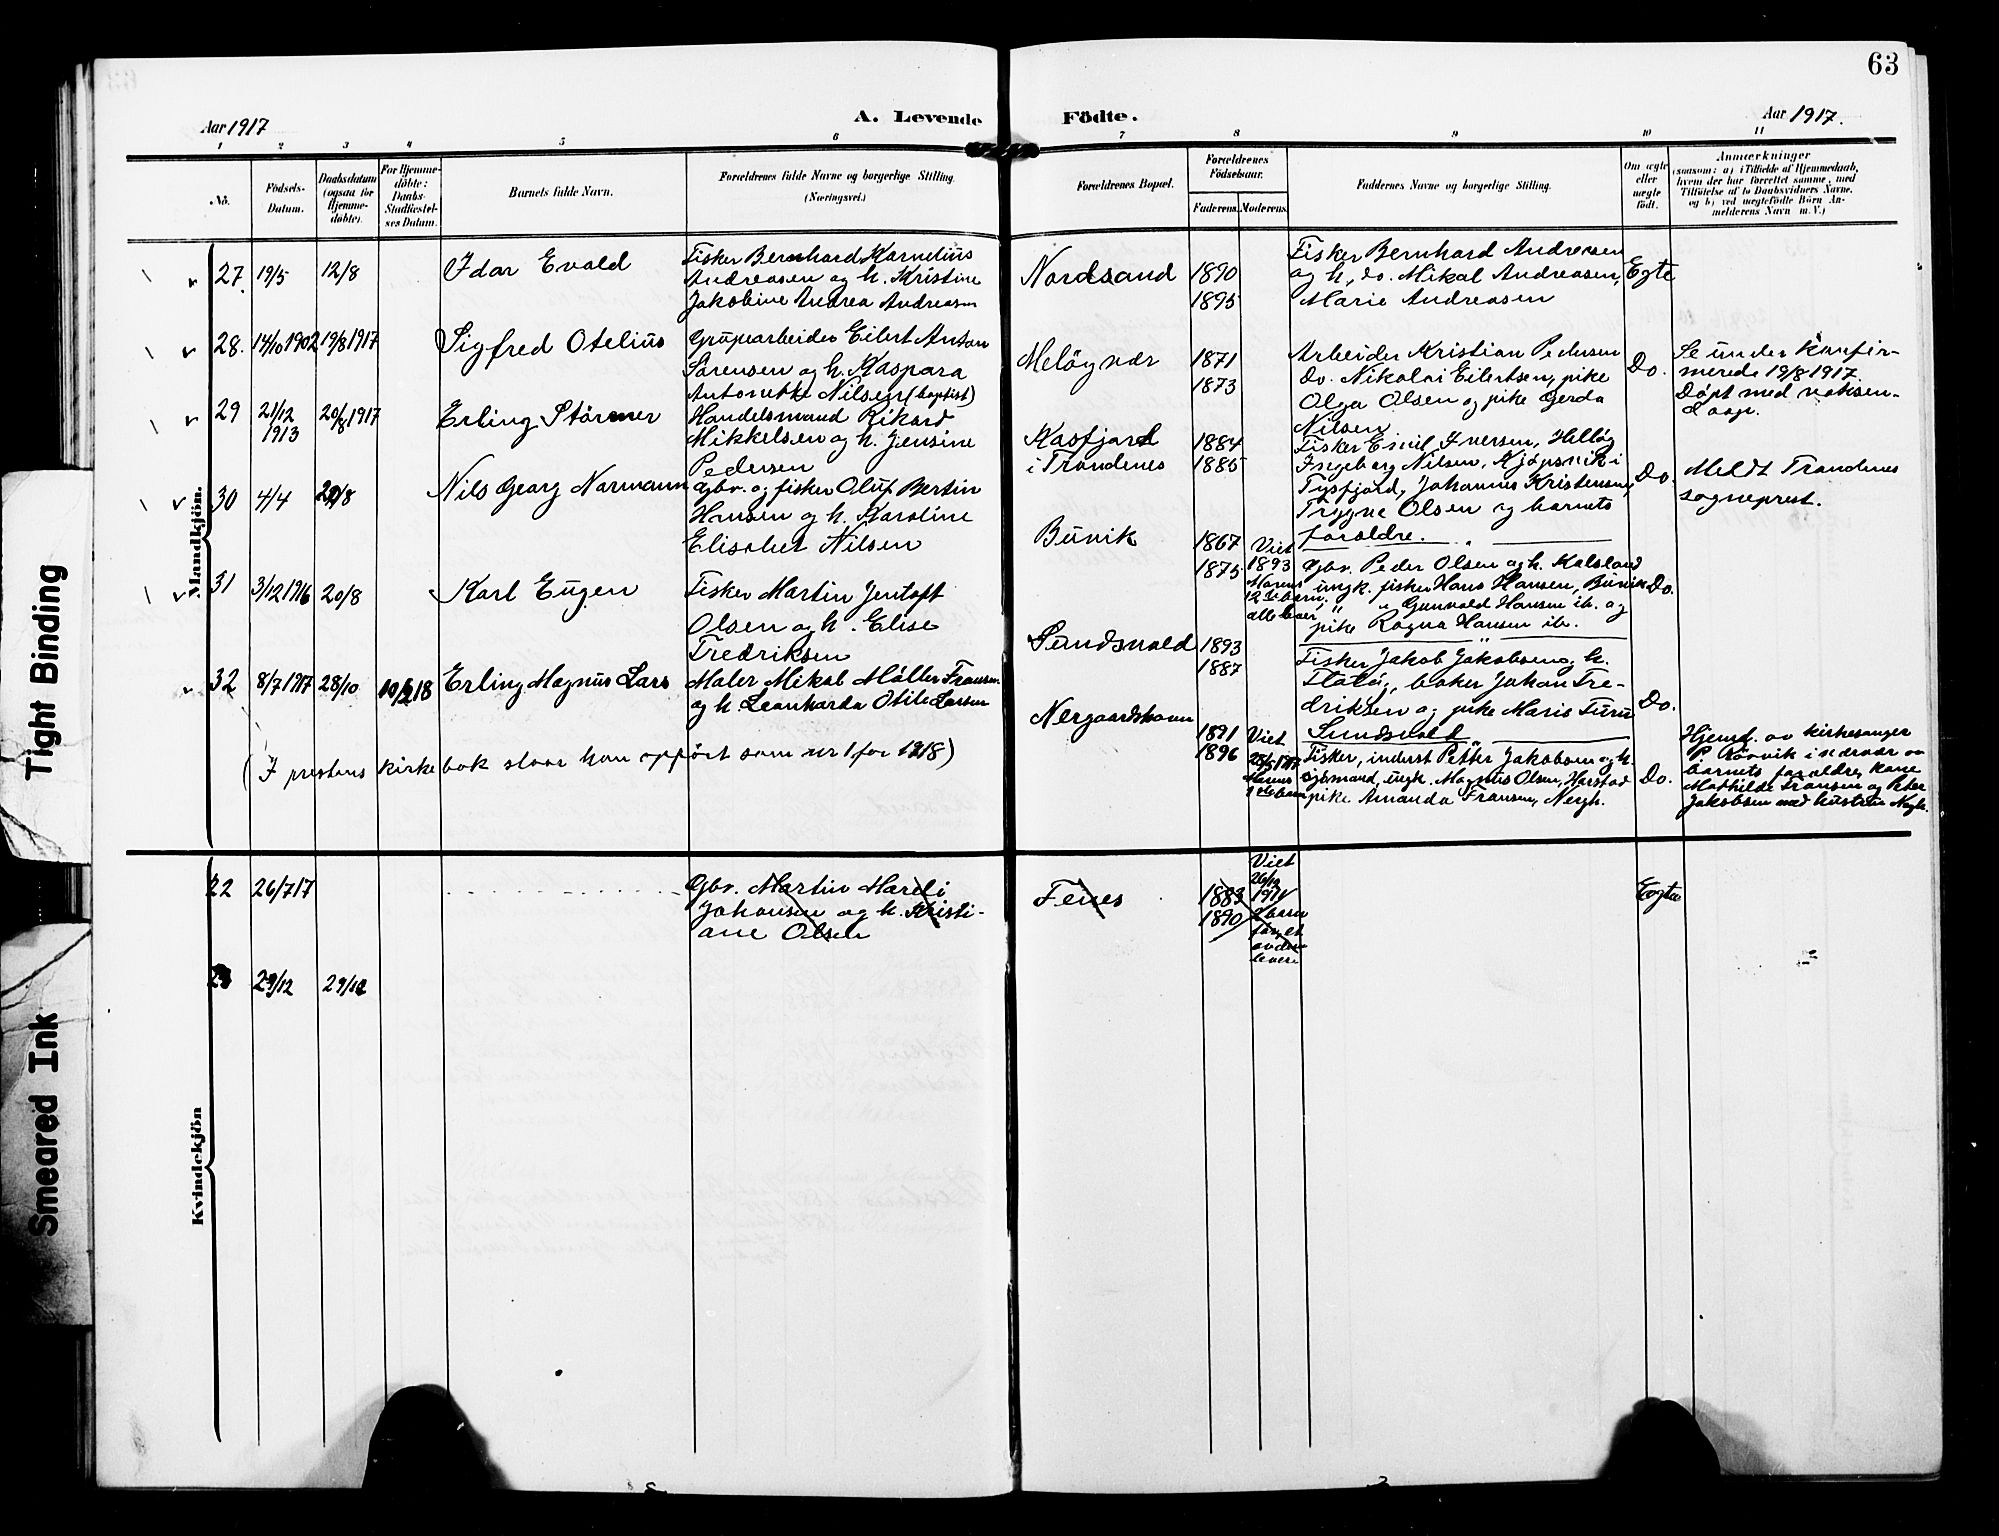 63
Aar 1917
A. Levende
Födte.
Aar 1917.
1 2 3 4 5 6 7 8 9 10 11
No.
Födsels-
Datum.
Daabsdatum
(ogsaa for
Hjemme-
döbte).
For Hjemme-
döbte:
Daabs-
Stadfæstel-
ses Datum.
Barnets fulde Navn.
Forældrenes fulde Navne og borgerlige Stilling.
(Næringsvei.)
Forældrenes Bopæl.
Forældrenes
Födselsaar.
Faderens.
Moderens.
Faddernes Navne og borgerlige Stilling.
Om ægte
eller
uægte
födt.
Anmærkninger
(saasom: a) i Tilfælde af Hjemmedaab,
hvem der har forrettet samme, med
Tilföielse af to Daabsvidners Navne,
og b) ved uægtefödte Börn An-
melderens Navn m. V.)
Mandkjön.
27. 19/5 12/8 Idar Evald
Fisker Bernhard Kornelius
Andreasen og h. Kristine
Jakobine Andrea Andreasen
Nordsand
1890
1895
Fisker Bernhard Andreasen
og h., do. Mikal Andreasen,
Marie Andreasen
Egte
28. 14/10 1902 19/8 1917 Sigfred Otelius
Grupearbeider Eilert Anton
Sørensen og h. Kaspara
Antonette Nilsen (baptist)
Meløyvær
1871
1873
Arbeider Kristian Pedersen
Do. Nikolai Eilertsen, pike
Olga Olsen og pike Gerda
Nilsen
Do.
Se under konfir-
merede 19/8 1917
Døpt med voksen-
daap.
29 21/12 1913 20/8 1917 Erling Störmer
Handelsmand Rikard
Mikkelsen og h. Jensine
Pedersen
Kasfjord
i Trondenes
1884
1885
Fisker Emil Iversen, Helløy
Ingeborg Nilsen, Kjøpsvik i
Tysfjord, Johannes Kristensen,
Trygve Olsen og barnets
forældre.
Do.
Meldt Trondenes
sogneprest.
30 4/4 20/8 Nils Georg Normann
Gbr. og fisker Oluf Bertin
Hansen og h. Karoline
Elisabet Nilsen
Büvik
1867
1875
Viet
1893
Morens
12te barn,
alle lever
Gbr. Peder Olsen og h. Kalsland
ungk. fisker Hans Hansen, Buvik
" " Gunvald Hansen ib. og
pike Ragna Hansen ib.
Do.
31 3/12 1916 20/8 Karl Eugen
Fisker Martin Jentoft
Olsen og h. Elise
Fredriksen
Sundsvold
1893
1887
Fisker Jakob Jakobsen og h.
Flatøy, baker Johan Fre-
driksen og pike Marie Furu
Sundsvold
Do.
32 8/7 1917 28/10 10/2 18 Erling Magnus Lars
Maler Mikal Möller Fransen
og h. Leonharda Otilie Larsen
Nergaardshavn
1891
1896
Viet
28/5 1917
Morens
1ste barn
Fisker, inderst Petter Jakobsen og h.
sjømand, ungk. Magnus Olsen, Harstad
pike Amanda Fransen, Nergh.
Do.
Hjemd. av kirkesanger
P. Rørvik i nærvær av
barnets forældre, kone
Mathilde Fransen og Peter
Jakobsen med hustru Nergh.
(I prestens kirkebok staar han oppført som nr 1 for 1918)
Kvindekjön
22 26/7 17
Gbr. Martin Mareli
Johansen og h. Kristi-
ane Olsen
Fenes
1883
1890
Viet
26/12
1911
2 barn
før, et
av dem
lever
Eegte
23 29/12 29/12
Tight Binding
Smeared Ink